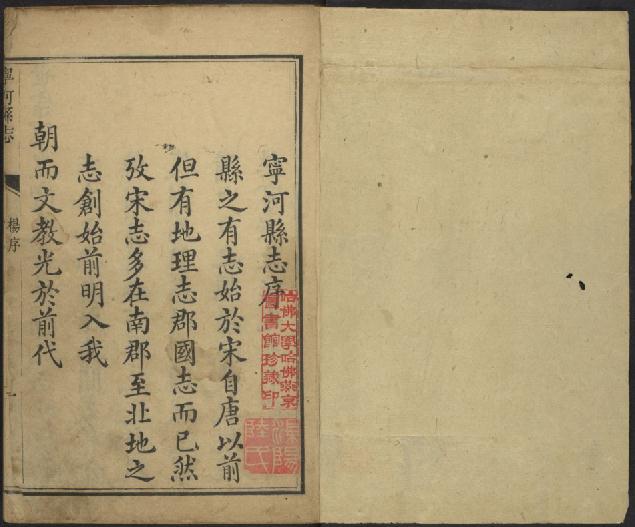 寧河縣志序
縣之有志始於宋自唐以前
但有地理志郡國志而已然
攷宋志多在南郡至北地之
志創始前明入我
朝而文教光於前代
寧河縣志
楊序
一
哈佛大學哈佛燕京
圖書館珍藏印